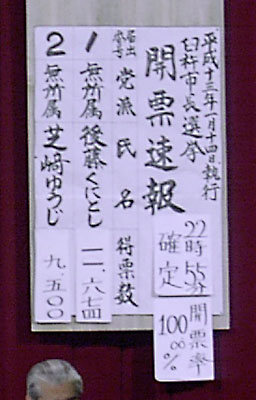 平成十三年一月十四日執行
臼杵市長選挙
開票速報
22時55分
確定
開票率
100.00%
届出番号 党派 氏名 得票数
1 無所属 後藤くにとし 一一、六七四
2 無所属 芝﨑ゆうじ 九、五〇〇